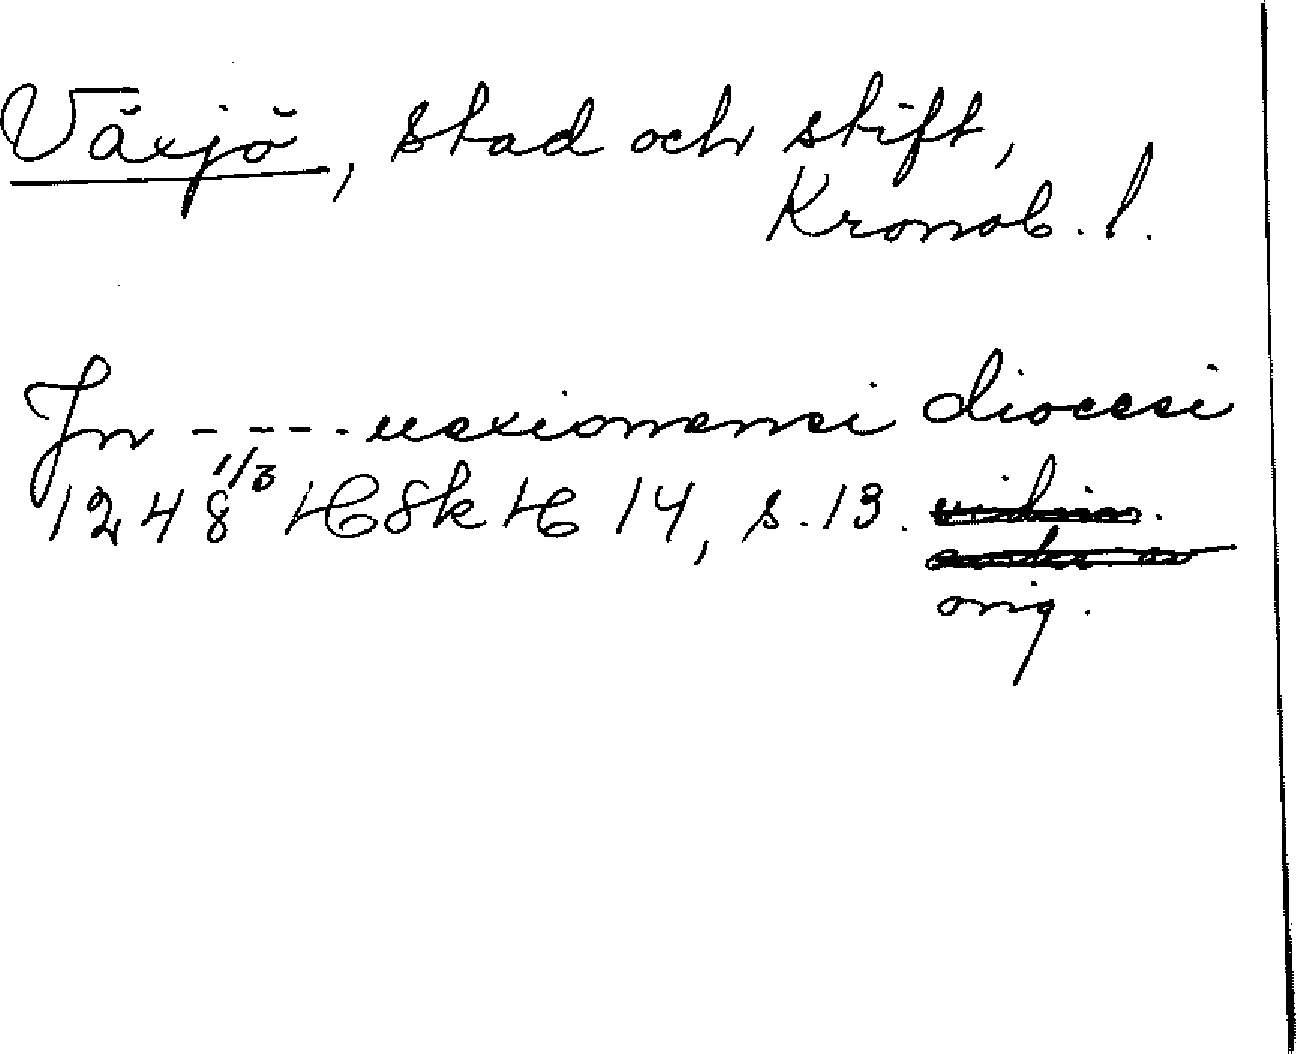 Växjö, stad och stift,
Kronob. l.
In - - - - uexionensi diocesi
1248 1/3 HSkH 14, s. 13.
orig.